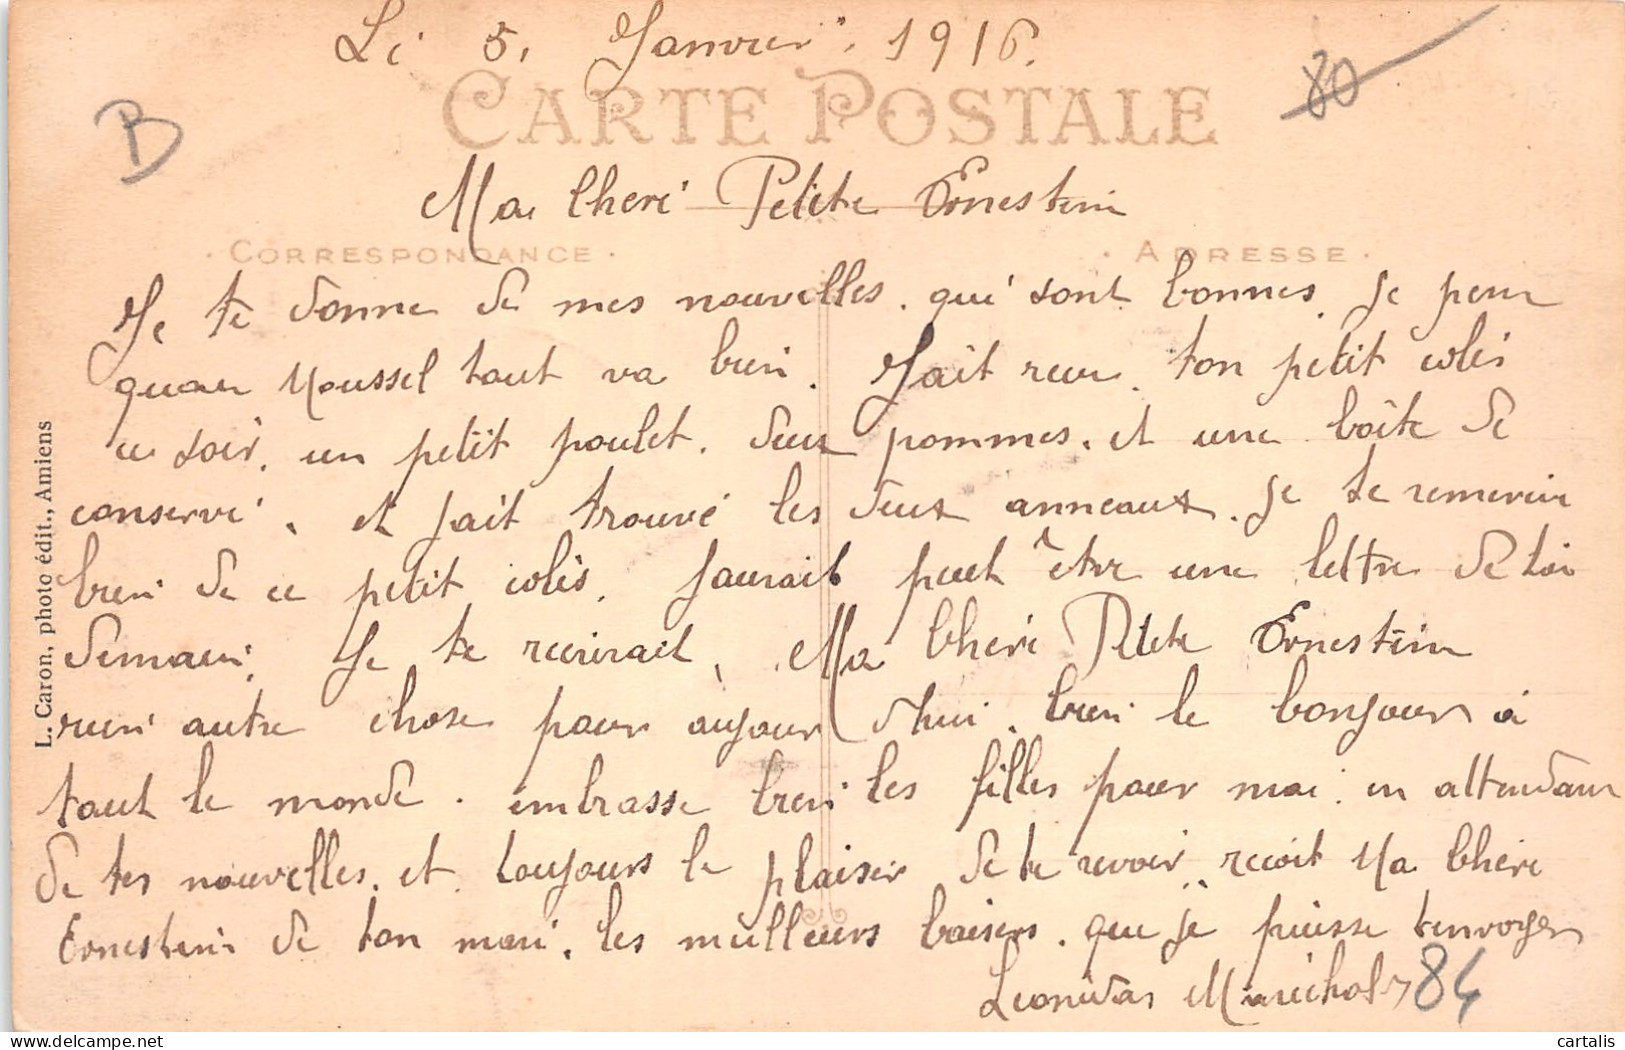 Le 5, Janvier, 1916.
80
CARTE POSTALE
B
Ma Cheri Petite Ernestin
CORRESPONDANCE
ADRESSE
Je te donne de mes nouvelles. qui sont bonnes. Je
tout va bien. Jait reçu. ton petit colis
ce soir. un petit poulet. deux pommes. et une boîte de
conservé, et jait trouvé les deux anneaux. Je te remerci
bien de ce petit colis. Jaurait peut être une lettre de toi
demain. Je te. Ma Cheri Petite Ernestin
rien autre chose pour aujour dhui. bien le bonjour à
tout le monde. embrasse bien les filles pour moi. en attendant
de tes nouvelles. et toujours le plaisir de te revoir. recoit Ma Chere
Ernestin de ton mari. les meilleurs baisers. que je puisse tenvoyer
Leonidas Marechal 84
L. Caron, photo édit., Amiens
delcampe.net
cartalis